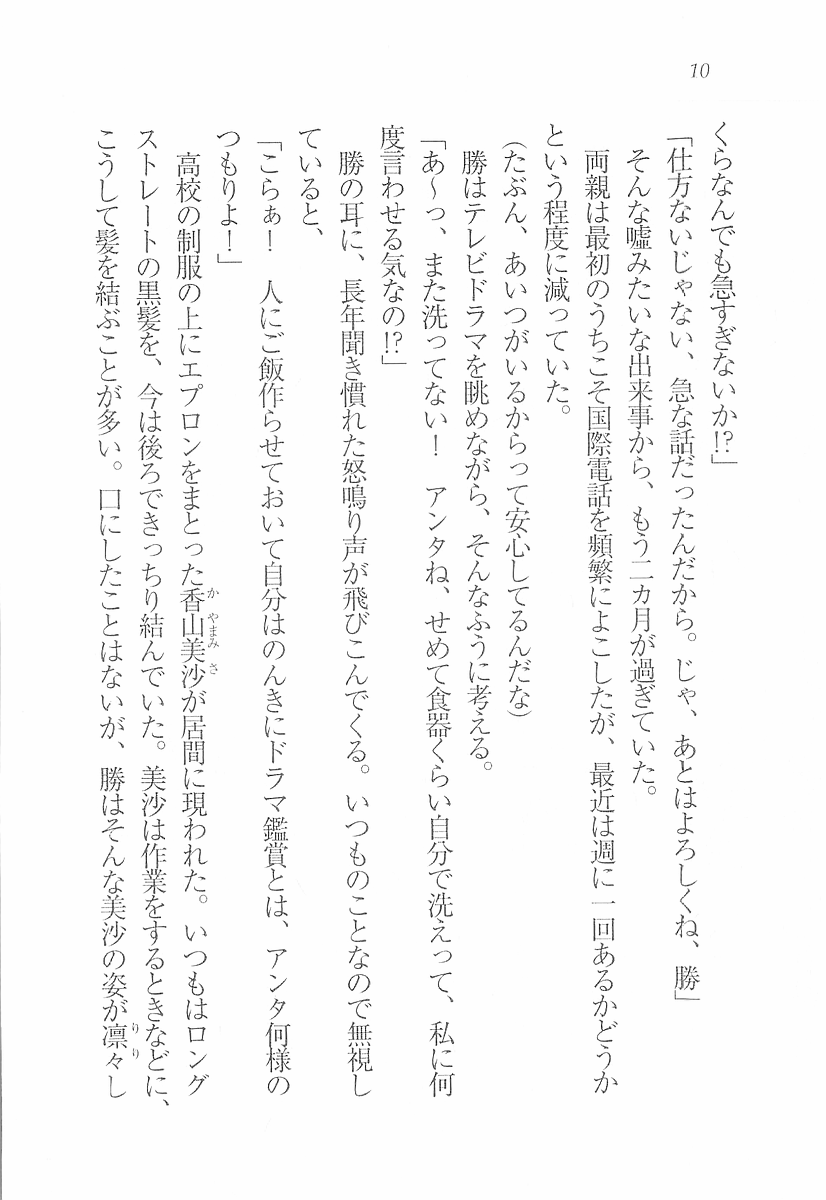 10
くらなんでも急すぎないか!?」
「仕方ないじゃない、急な話だったんだから。じゃ、あとはよろしくね、勝」
そんな嘘みたいな出来事から、もう二カ月が過ぎていた。
両親は最初のうちこそ国際電話を頻繁によこしたが、最近は週に一回あるかどうか
という程度に減っていた。
(たぶん、あいつがいるからって安心してるんだな)
勝はテレビドラマを眺めながら、そんなふうに考える。
「あ〜っ、また洗ってない！　アンタね、せめて食器くらい自分で洗えって、私に何
度言わせる気なの!?」
勝の耳に、長年聞き慣れた怒鳴り声が飛びこんでくる。いつものことなので無視し
ていると、
「こらぁ！　人にご飯作らせておいて自分はのんきにドラマ鑑賞とは、アンタ何様の
つもりよ！」
高校の制服の上にエプロンをまとった香山美沙が居間に現われた。いつもはロング
かやまみさ
ストレートの黒髪を、今は後ろできっちり結んでいた。美沙は作業をするときなどに、
こうして髪を結ぶことが多い。口にしたことはないが、勝はそんな美沙の姿が凛々し
りり